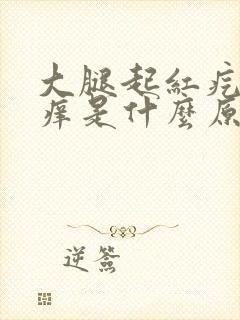 大腿起紅疙
癢是什麼原
逆簽